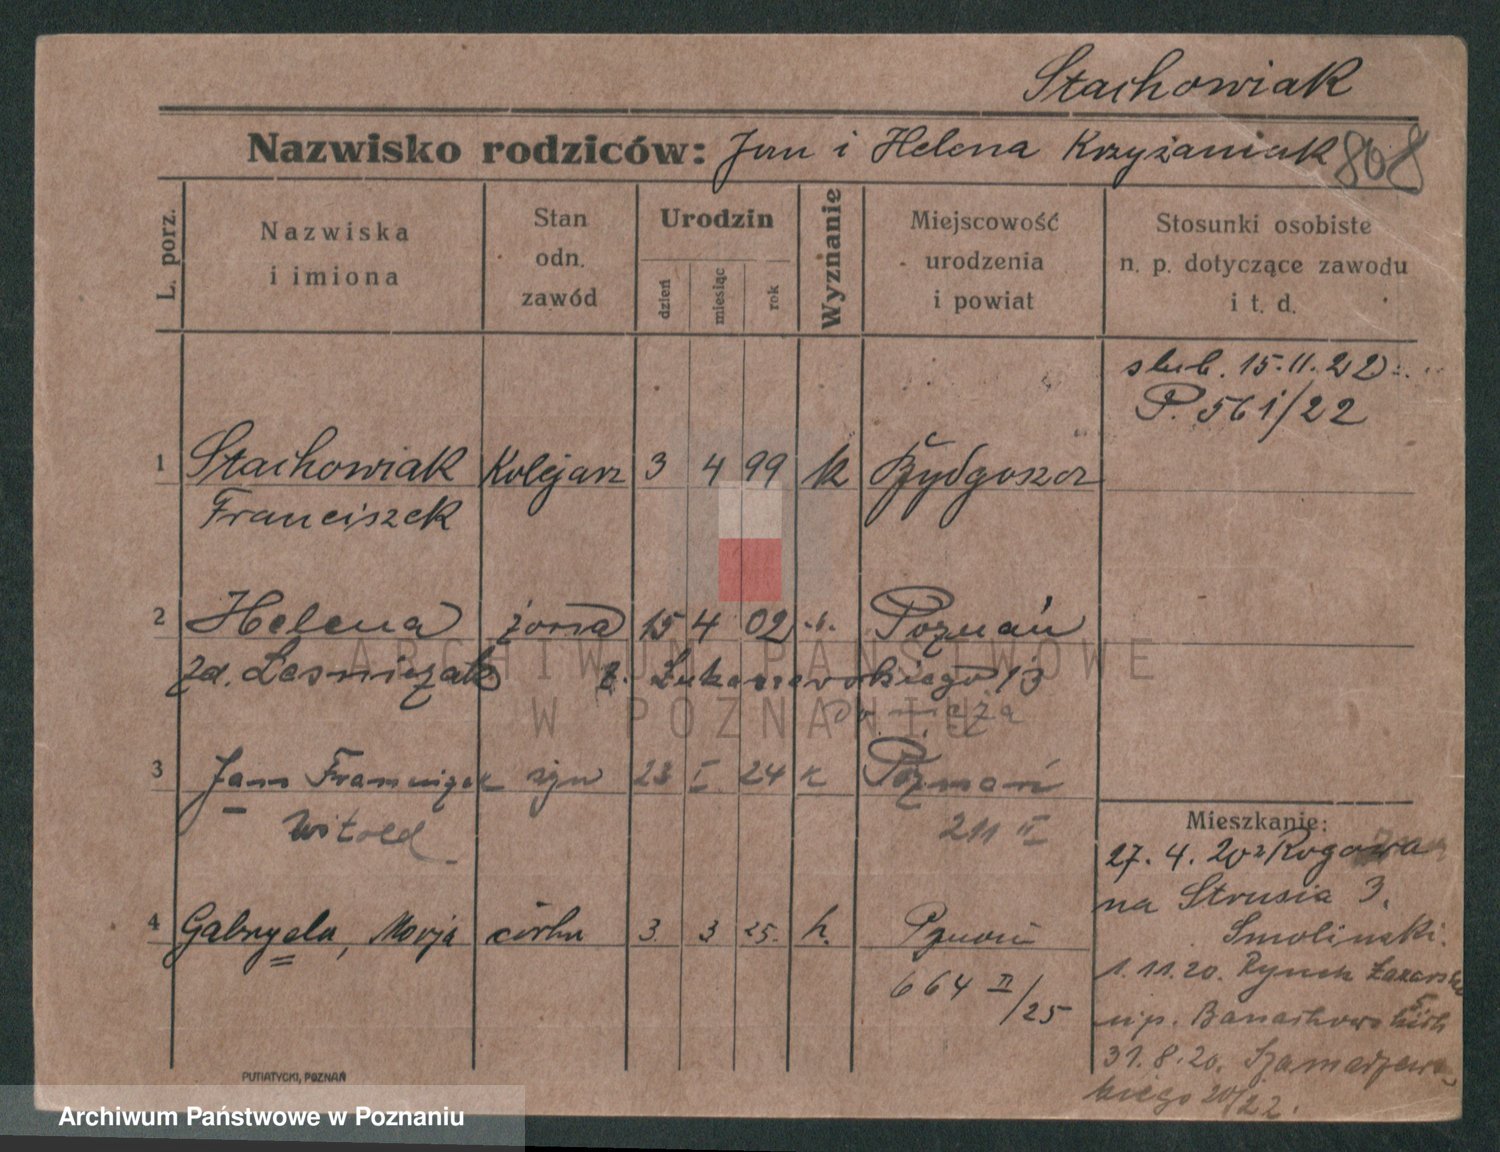 Stachowiak
Nazwisko rodziców: Jan i Helena Krzyżaniak 868
L. porz.
Nazwiska i imiona
Stan odn. zawód
Urodzin
dzień
miesiąc
rok
Wyznanie
Miejscowość urodzenia i powiat
Stosunki osobiste n. p. dotyczące zawodu i t. d.
slub. 15.11.22
P. 561/22
1 Stachowiak Kolejarz 3 4 99 k Bydgoszcz
Franciszek
2 Helena żona 15 4 02 Poznań
zd. Lesniczak z. Łukaszewskiego 13
do męża
3 Jan Franciszek syn 23 I 24 k Poznań
Witold 211 II
4 Gabryela, Marja córka 3 3 25. k. Poznań
664 II/25
Mieszkanie:
27. 4. 20 z Rogowa
na Strusia 3.
Smolinski.
1.11.20. Rynek Łazarski
5
np. Banachowskich
31.8.20. Szamarzews
kiego 20/22.
PUTIATYCKI, POZNAŃ
ARCHIWUM PAŃSTWOWE
W POZNANIU
Archiwum Państwowe w Poznaniu